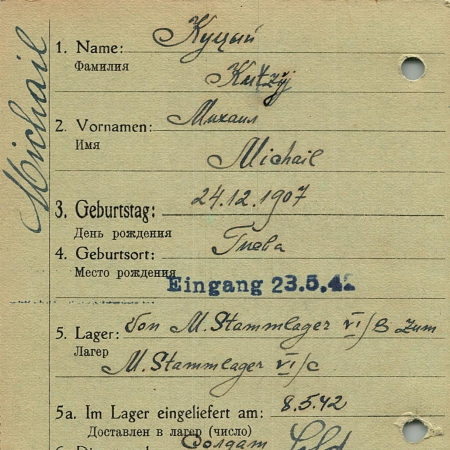 Michail
1. Name: Куцый
Фамилия
Kutzyj
2. Vornamen: Михаил
Имя
Michail
3. Geburtstag: 24.12.1907
День рождения
4. Geburtsort: Гнева
Место рождения
Eingang 23.5.42
5. Lager: Von M. Stammlager VI/B zum
Лагер
M. Stammlager VI/C
5a. Im Lager eingeliefert am: 8.5.42
Доставлен в лагер (число)
Солдат Sold